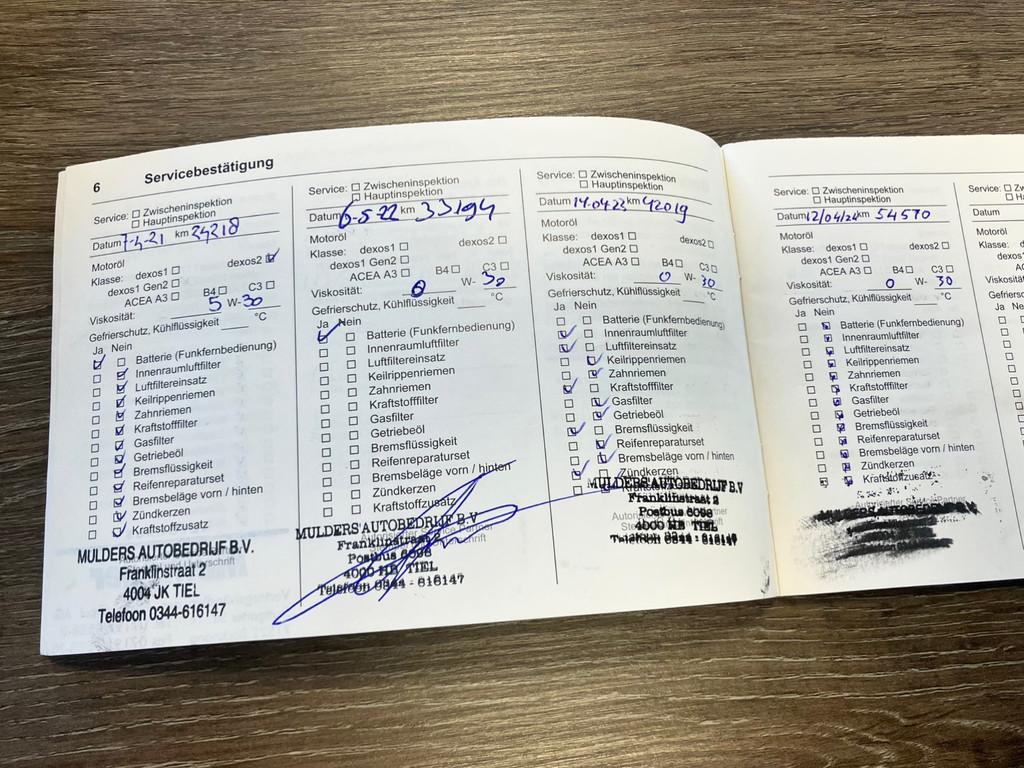 6 Servicebestätigung
Service: ☐ Zwischeninspektion
☐ Hauptinspektion
Datum 7-4-21 km 24218
Motoröl
Klasse: dexos1 ☐ dexos2 ☑
dexos1 Gen2 ☐
ACEA A3 ☐ B4 ☐ C3 ☐
Viskosität: 5 W- 30
Gefrierschutz, Kühlflüssigkeit ____ °C
Ja Nein
☑ ☐ Batterie (Funkfernbedienung)
☐ ☑ Innenraumluftfilter
☐ ☑ Luftfiltereinsatz
☐ ☑ Keilrippenriemen
☐ ☑ Zahnriemen
☐ ☑ Kraftstofffilter
☐ ☑ Gasfilter
☐ ☑ Getriebeöl
☐ ☑ Bremsflüssigkeit
☐ ☑ Reifenreparaturset
☐ ☑ Bremsbeläge vorn / hinten
☐ ☑ Zündkerzen
☐ ☑ Kraftstoffzusatz
MULDERS AUTOBEDRIJF B.V.
Franklinstraat 2
4004 JK TIEL
Telefoon 0344-616147
Service: ☐ Zwischeninspektion
☐ Hauptinspektion
Datum 6-5-22 km 33194
Motoröl
Klasse: dexos1 ☐ dexos2 ☐
dexos1 Gen2 ☐
ACEA A3 ☐ B4 ☐ C3 ☐
Viskosität: 0 W- 30
Gefrierschutz, Kühlflüssigkeit ____ °C
Ja Nein
☑ ☐ Batterie (Funkfernbedienung)
☐ ☐ Innenraumluftfilter
☐ ☐ Luftfiltereinsatz
☐ ☐ Keilrippenriemen
☐ ☐ Zahnriemen
☐ ☐ Kraftstofffilter
☐ ☐ Gasfilter
☐ ☐ Getriebeöl
☐ ☐ Bremsflüssigkeit
☐ ☐ Reifenreparaturset
☐ ☐ Bremsbeläge vorn / hinten
☐ ☐ Zündkerzen
☐ ☐ Kraftstoffzusatz
MULDERS AUTOBEDRIJF B.V.
Franklinstraat 2
Postbus 6098
4000 HB TIEL
Telefoon 0344 - 616147
Service: ☐ Zwischeninspektion
☐ Hauptinspektion
Datum 14.04.23 km 42019
Motoröl
Klasse: dexos1 ☐ dexos2 ☐
dexos1 Gen2 ☐
ACEA A3 ☐ B4 ☐ C3 ☐
Viskosität: 0 W- 30
Gefrierschutz, Kühlflüssigkeit ____ °C
Ja Nein
☐ ☐ Batterie (Funkfernbedienung)
☑ ☐ Innenraumluftfilter
☑ ☐ Luftfiltereinsatz
☐ ☑ Keilrippenriemen
☐ ☑ Zahnriemen
☑ ☐ Kraftstofffilter
☐ ☑ Gasfilter
☐ ☑ Getriebeöl
☑ ☐ Bremsflüssigkeit
☐ ☑ Reifenreparaturset
☐ ☑ Bremsbeläge vorn / hinten
☑ ☐ Zündkerzen
MULDERS AUTOBEDRIJF B.V
Franklinstraat 2
Postbus 6098
4000 HB TIEL
Telefoon 0344 - 616147
Service: ☐ Zwischeninspektion
☐ Hauptinspektion
Datum 12/04/24 km 54570
Motoröl
Klasse: dexos1 ☐ dexos2 ☐
dexos1 Gen2 ☐
ACEA A3 ☐ B4 ☐ C3 ☐
Viskosität: 0 W- 30
Gefrierschutz, Kühlflüssigkeit ____ °C
Ja Nein
☐ ☑ Batterie (Funkfernbedienung)
☐ ☑ Innenraumluftfilter
☐ ☑ Luftfiltereinsatz
☐ ☑ Keilrippenriemen
☐ ☑ Zahnriemen
☐ ☑ Kraftstofffilter
☐ ☑ Gasfilter
☐ ☑ Getriebeöl
☐ ☑ Bremsflüssigkeit
☐ ☑ Reifenreparaturset
☐ ☑ Bremsbeläge vorn / hinten
☐ ☑ Zündkerzen
☑ ☑ Kraftstoffzusatz
MULDERS AUTOBEDRIJF B.V
Service: ☐
☐
Datum
Motoröl
Klasse:
Viskosität:
Ja Nein